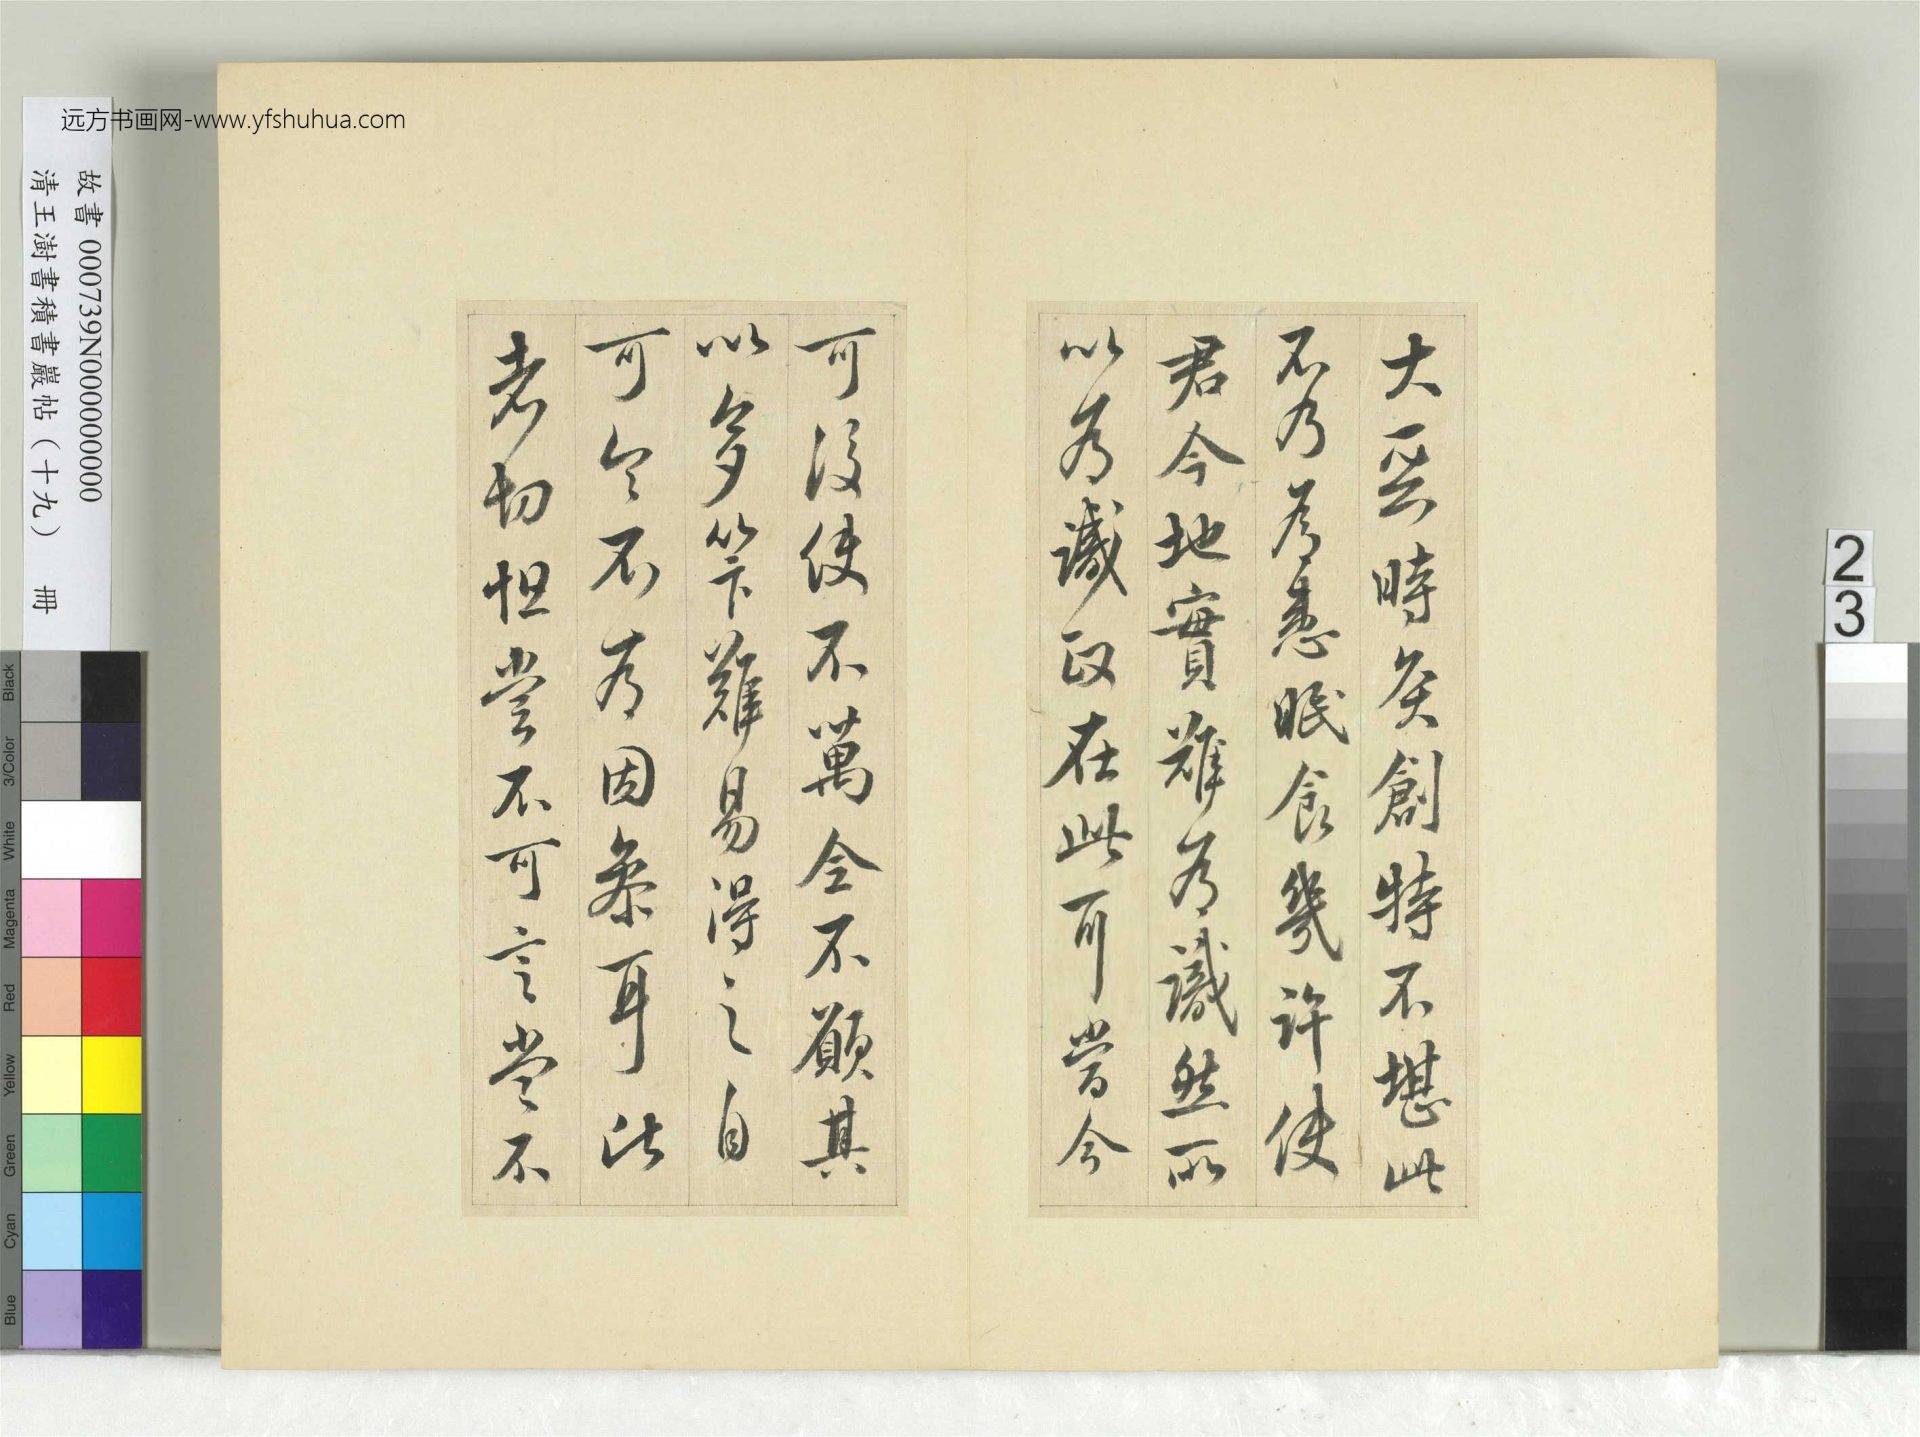 远方书画网-www.yfshuhua.com
故書 000739N000000000
清王澍書積書巖帖（十九） 冊
23
大惡時灸創特不堪此
不乃為患眠食幾許使
君今地實難為識然所
以為識政在此耳當今
可沒使不萬全不願其
以多算難易得之自
可令不為因參耳比
者切怛尝不可言尝不
Black
3/Color
White
Magenta
Red
Yellow
Green
Cyan
Blue